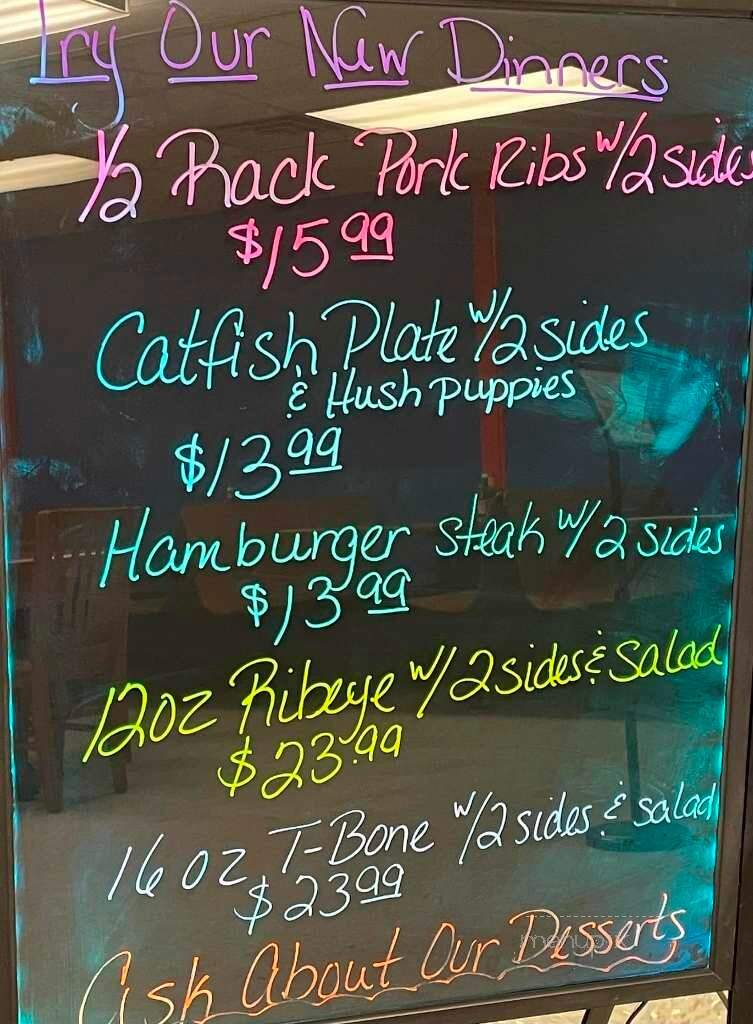 Try Our New Dinners
1/2 Rack Pork Ribs w/2 sides
$15.99
Catfish Plate w/2 sides
& Hush puppies
$13.99
Hamburger steak w/2 sides
$13.99
12oz Ribeye w/2 sides & Salad
$23.99
16 oz T-Bone w/2 sides & salad
$23.99
Ask About Our Desserts